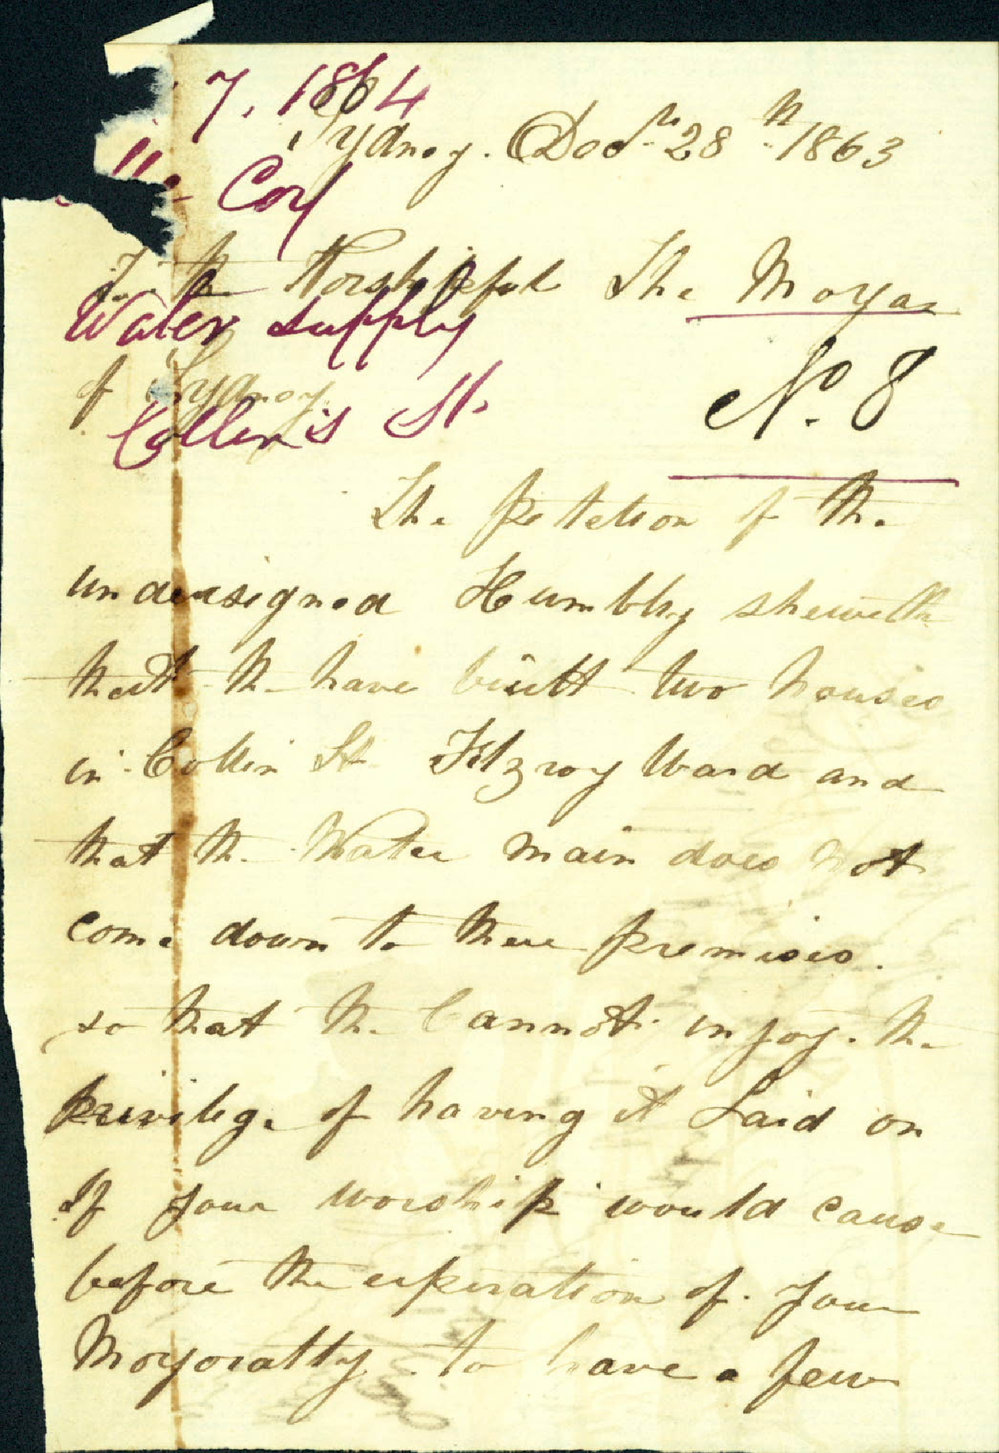 7. 1864
Sydney. Decr 28th 1863
Coy
To the Worshipful The Moyar
Water supply
of Sydney
No. 8
Collin's St.
The Petetion of the
undersigned Humbly sheweth
that the have built two houses
in Collin St Fitzroy Ward and
that the Water main does not
come down to there premises.
so that the Cannot injoy. the
privilege of having it Laid on
If your worship would cause
before the experation of. your
Moyoratty to have a few